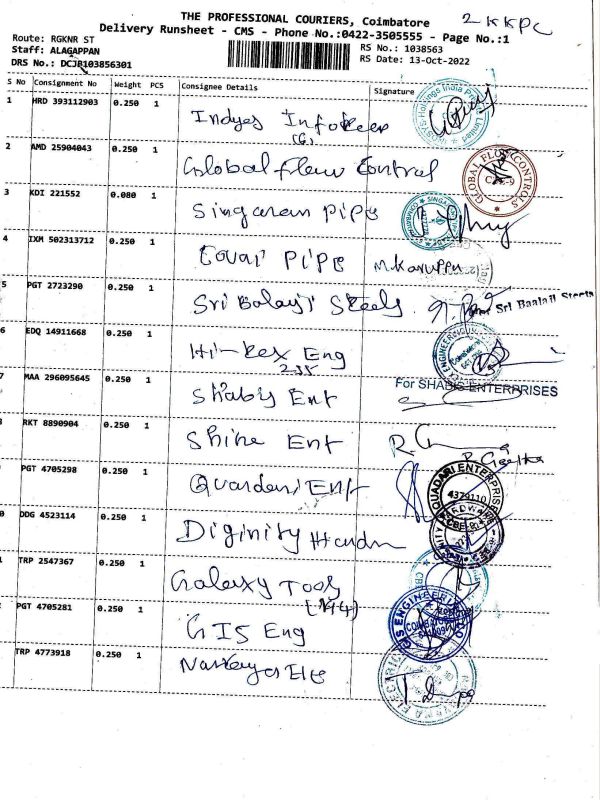 THE PROFESSIONAL COURIERS, Coimbatore
2 KKPC
Delivery Runsheet - CMS - Phone No.:0422-3505555 - Page No.:1
Route: RGKNR ST
RS No.: 1038563
Staff: ALAGAPPAN
RS Date: 13-Oct-2022
DRS No.: DCJB103856301
S No Consignment No Weight PCS Consignee Details Signature
1 HRD 393112903 0.250 1
2 AMD 25904043 0.250 1 Global flow Control
GLOBAL FLOWCONTROLS
CBE-9
3 KDI 221552 0.080 1 Singaram PiPe
4 IXM 502313712 0.250 1 PiPe M.Karuppu
5 PGT 2723290 0.250 1 Sri Balaji Steels
For Sri Baalaji Steels
6 EDQ 14911668 0.250 1 Hi-Rex Eng
235
7 MAA 296095645 0.250 1 Shabis Ent
For SHABIS ENTERPRISES
RKT 8890904 0.250 1 Shine Ent
R. Geetha
PGT 4705298 0.250 1 Quardari Ent
QUADARI ENTERPRISE
4379110
0 DDG 4523114 0.250 1 Diginity Hardw
TRP 2547367 0.250 1 Galaxy Tools
PGT 4705281 0.250 1 GIS Eng
GIS ENGINEER
COIMBATORE
TRP 4773918 0.250 1 Naraya Ele